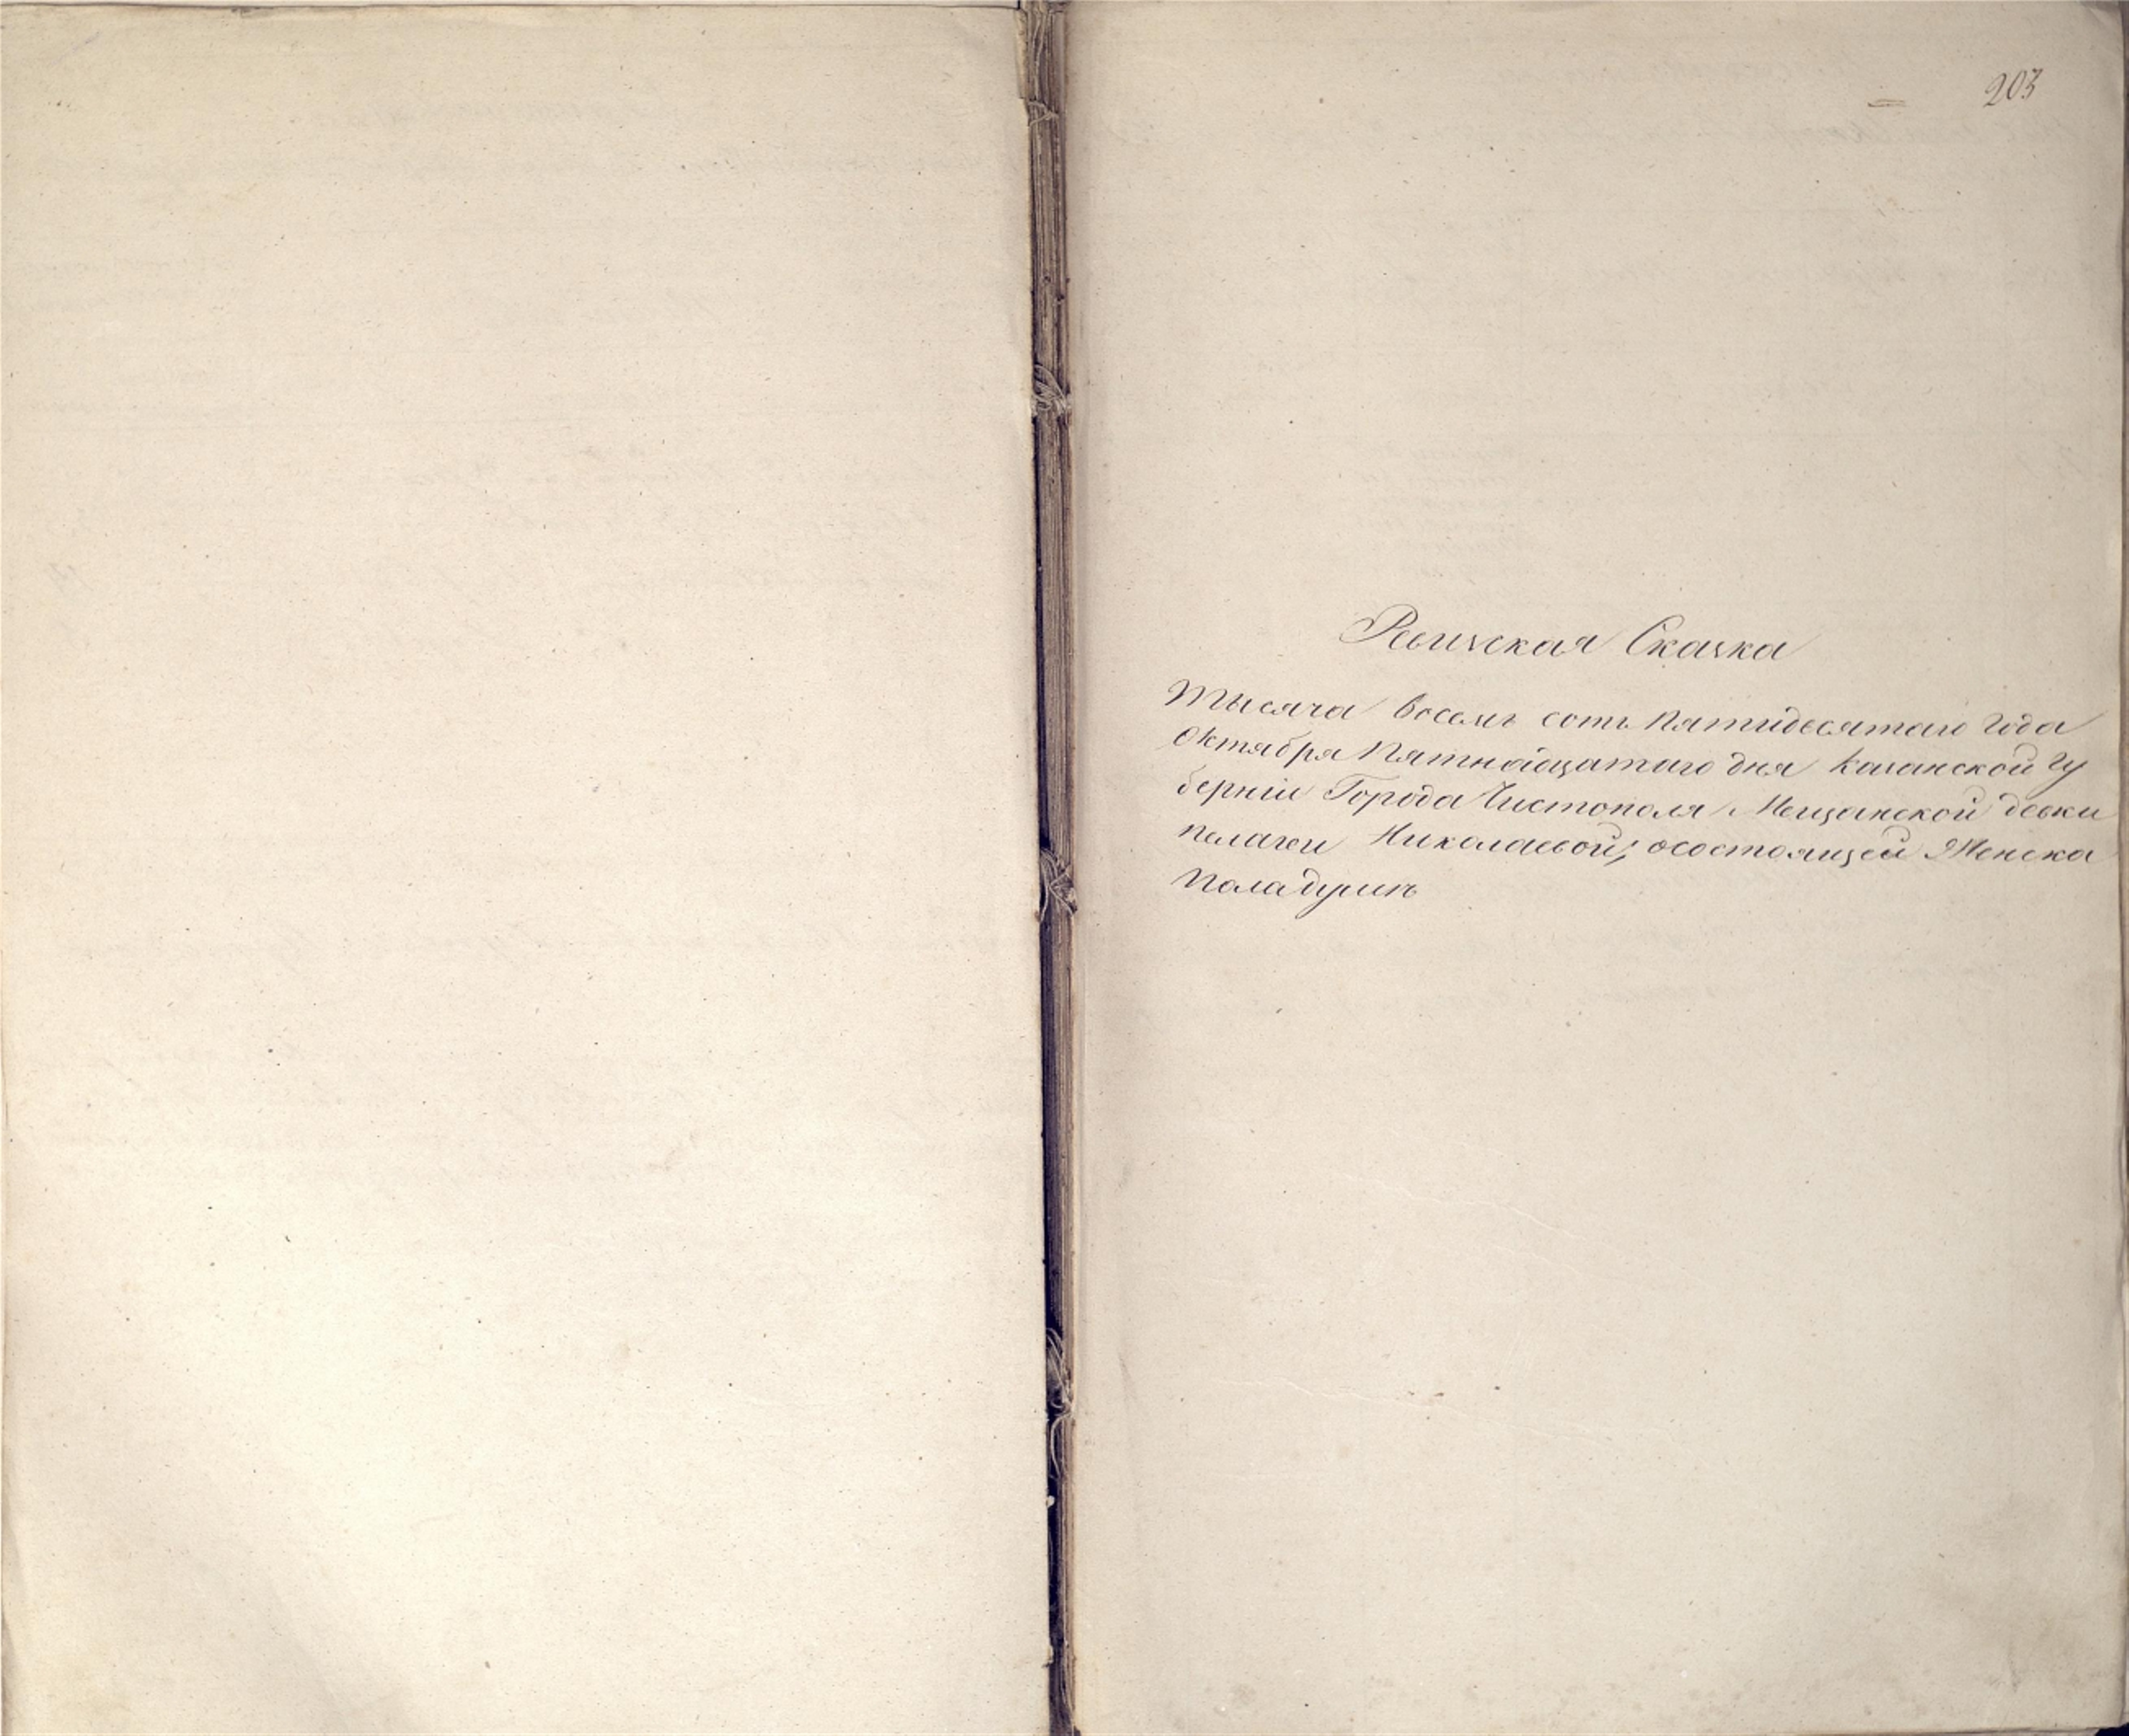 203
Ревизская Сказка
Тысяча восемь сотъ пятидесятаго года
Октября Пятнадцатаго дня Казанской гу
берніи Города Чистополя Мещанской девки
пелагеи Николаевой, осостоящей Женска
пола душъ